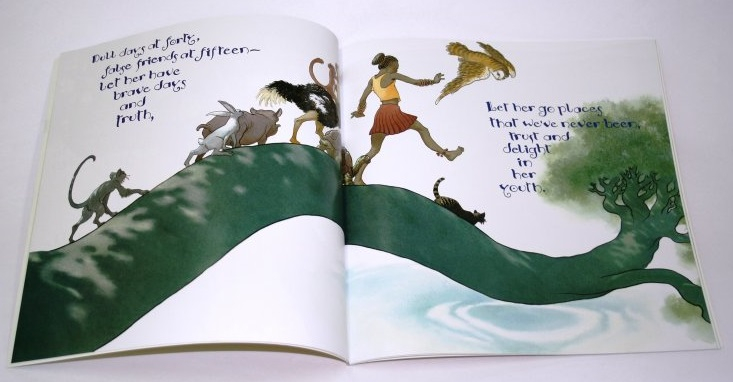 Dull days at forty,
false friends at fifteen—
Let her have
brave days
and
truth,
Let her go places
that we've never been,
trust and
delight
in
her
youth.